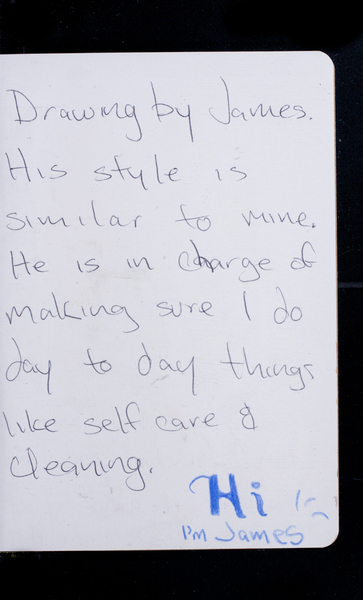 Drawing by James.
His style is
similar to mine.
He is in charge of
making sure I do
day to day things
like self care &
cleaning.
Hi
I'm James